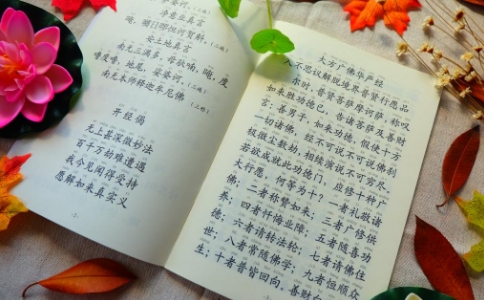 净意业真言
安土地真言
南无三满多,母驮喃,唵,度
噜度噜,地尾,娑婆诃。(三遍)
南无本师释迦牟尼佛(三遍)
开经偈
无上甚深微妙法
百千万劫难遭遇
我今见闻得受持
愿解如来真实义
大方广佛华严经
入不思议解脱境界普贤行愿品
尔时,普贤菩萨摩诃萨,称叹
如来胜功德已,告诸菩萨及善财
言:善男子,如来功德,假使十方
一切诸佛,经不可说不可说佛刹
极微尘数劫,相续演说,不可穷尽。
若欲成就此功德门,应修十种广
大行愿。何等为十?一者礼敬诸
佛;二者称赞如来;三者广修供
养;四者忏悔业障;五者随喜功
德;六者请转法轮;七者请佛住
世;八者常随佛学;九者恒顺众
生;十者普皆回向。善财